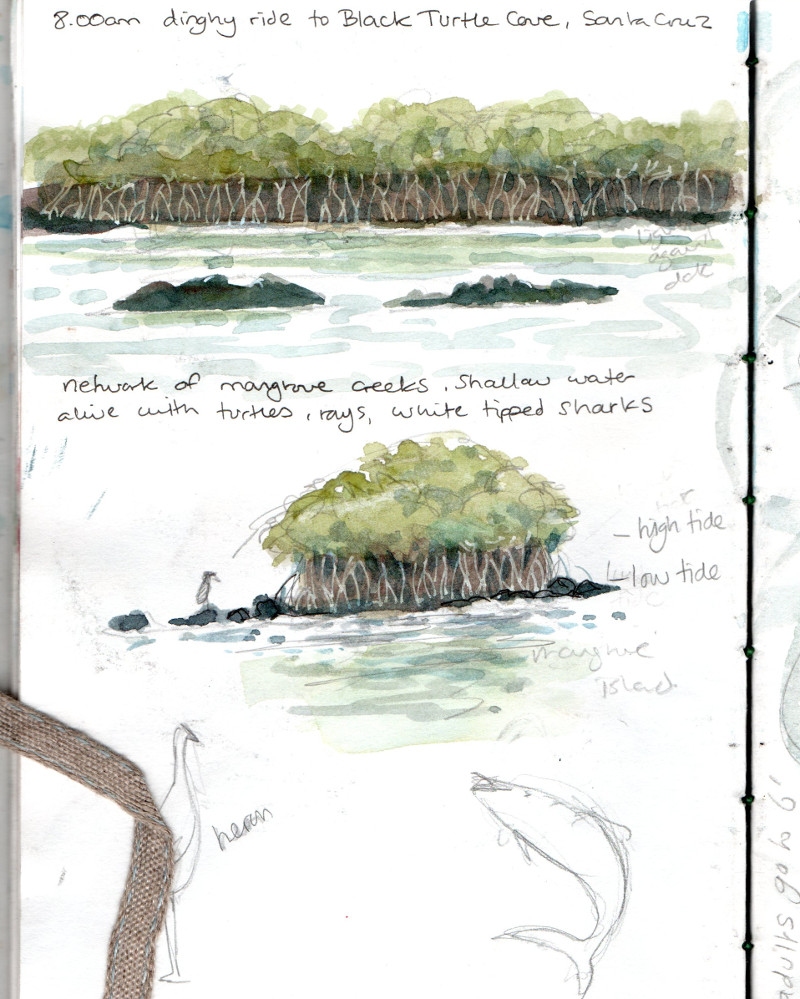 8.00am dinghy ride to Black Turtle Cove, Santa Cruz
light
against
dck
network of mangrove creeks, shallow water
alive with turtles, rays, white tipped sharks
high tide
low tide
mangrove
island.
heron
adults go to 6'